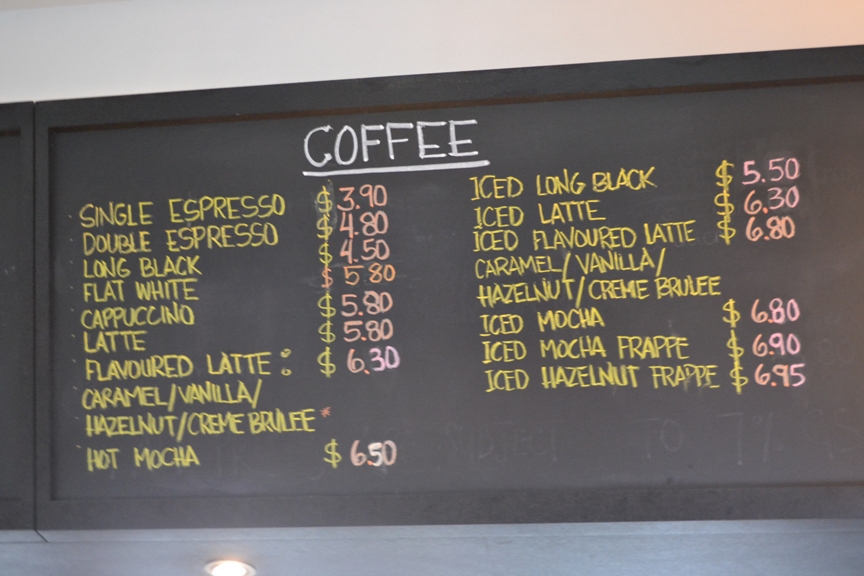 COFFEE
SINGLE ESPRESSO $ 3.90
DOUBLE ESPRESSO $ 4.80
LONG BLACK $ 4.50
FLAT WHITE $ 5.80
CAPPUCCINO $ 5.80
LATTE $ 5.80
FLAVOURED LATTE : $ 6.30
CARAMEL/VANILLA/
HAZELNUT/CREME BRULEE *
HOT MOCHA $ 6.50
ICED LONG BLACK $ 5.50
ICED LATTE $ 6.30
ICED FLAVOURED LATTE $ 6.80
CARAMEL/VANILLA/
HAZELNUT/CREME BRULEE
ICED MOCHA $ 6.80
ICED MOCHA FRAPPE $ 6.90
ICED HAZELNUT FRAPPE $ 6.95
SUBJECT TO 7%